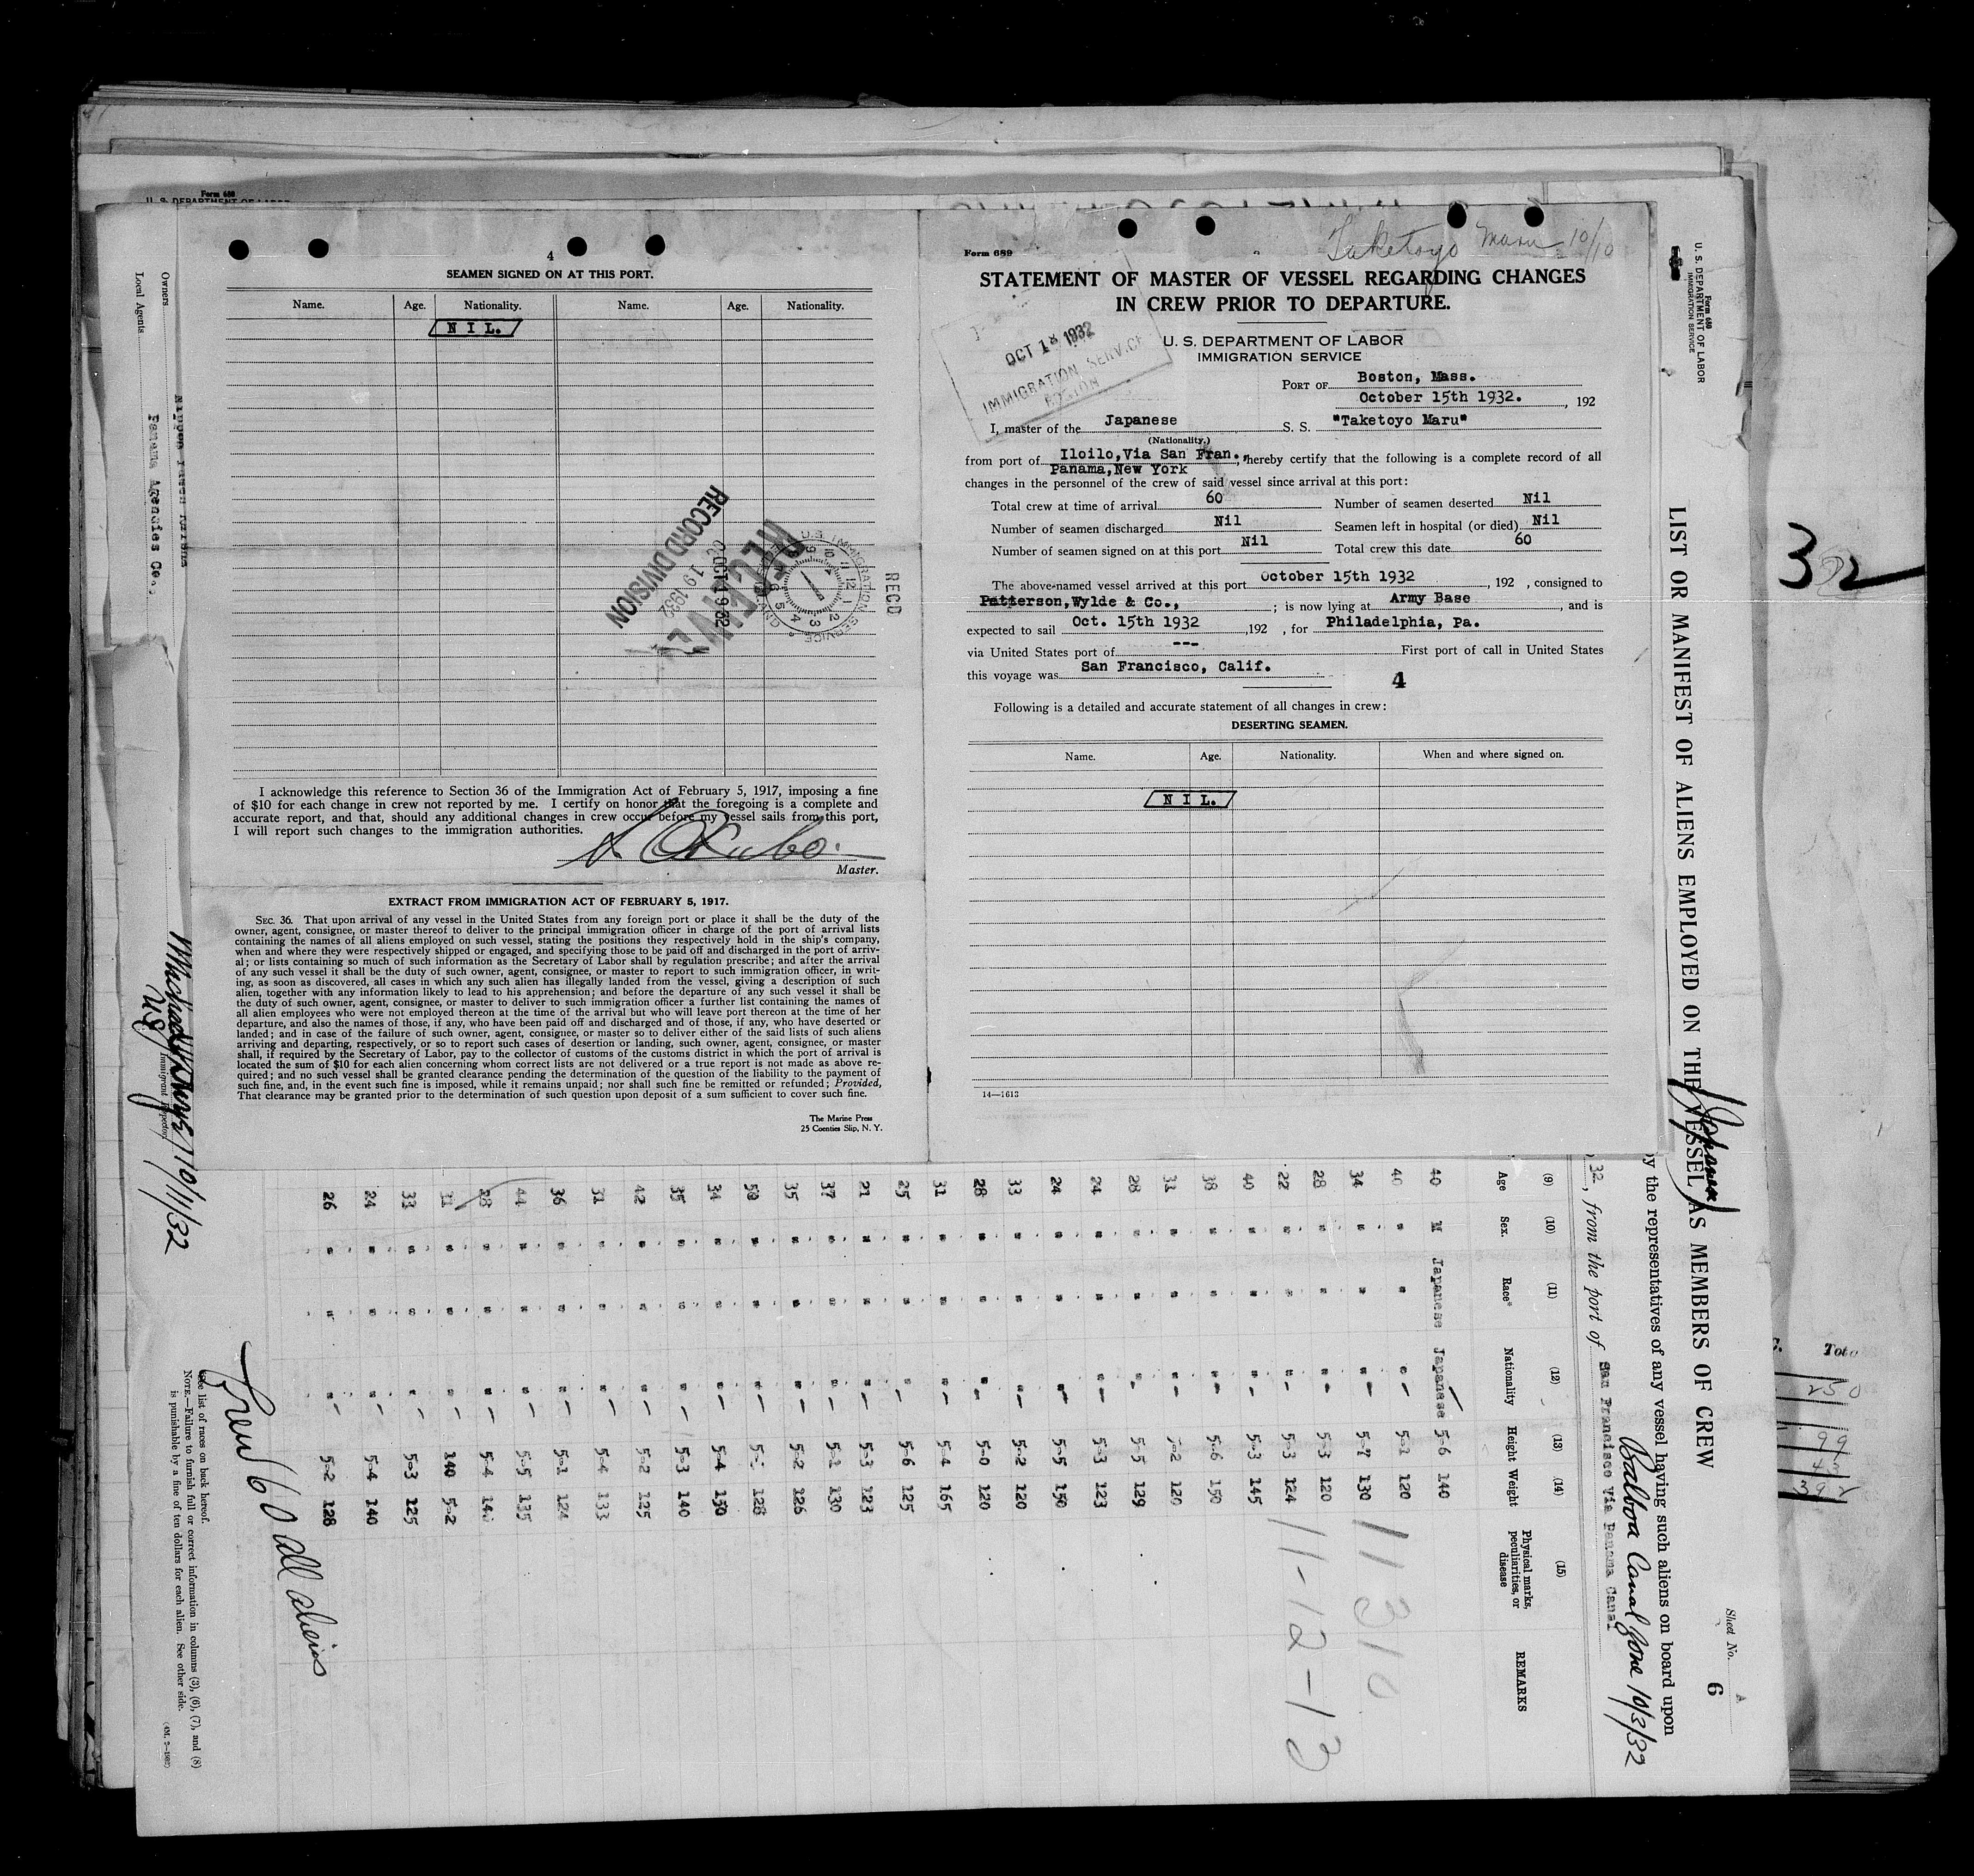 Form 689
Taketoyo Maru 10/10
STATEMENT OF MASTER OF VESSEL REGARDING CHANGES
IN CREW PRIOR TO DEPARTURE.
U. S. DEPARTMENT OF LABOR
IMMIGRATION SERVICE
OCT 1 1932
IMMIGRATION SERVICE
BOSTON
PORT OF Boston, Mass.
October 15th 1932. , 192
I, master of the Japanese S. S. "Taketoyo Maru"
(Nationality.)
from port of Iloilo,Via San Fran., hereby certify that the following is a complete record of all
Panama,New York
changes in the personnel of the crew of said vessel since arrival at this port:
Total crew at time of arrival 60 Number of seamen deserted Nil
Number of seamen discharged Nil Seamen left in hospital (or died) Nil
Number of seamen signed on at this port Nil Total crew this date 60
The above-named vessel arrived at this port October 15th 1932 , 192 , consigned to
Patterson,Wylde & Co., ; is now lying at Army Base , and is
expected to sail Oct. 15th 1932 ,192 , for Philadelphia, Pa.
via United States port of --- First port of call in United States
this voyage was San Francisco, Calif.
4
Following is a detailed and accurate statement of all changes in crew:
DESERTING SEAMEN.
Name. Age. Nationality. When and where signed on.
N I L.
14—1613
4
SEAMEN SIGNED ON AT THIS PORT.
Name. Age. Nationality. Name. Age. Nationality.
N I L.
RECORD DIVISION
OCT 19 1932
RECD
U.S. IMMIGRATION SERVICE
I acknowledge this reference to Section 36 of the Immigration Act of February 5, 1917, imposing a fine
of $10 for each change in crew not reported by me. I certify on honor that the foregoing is a complete and
accurate report, and that, should any additional changes in crew occur before my vessel sails from this port,
I will report such changes to the immigration authorities.
Master.
EXTRACT FROM IMMIGRATION ACT OF FEBRUARY 5, 1917.
SEC. 36. That upon arrival of any vessel in the United States from any foreign port or place it shall be the duty of the
owner, agent, consignee, or master thereof to deliver to the principal immigration officer in charge of the port of arrival lists
containing the names of all aliens employed on such vessel, stating the positions they respectively hold in the ship's company,
when and where they were respectively shipped or engaged, and specifying those to be paid off and discharged in the port of arriv-
al; or lists containing so much of such information as the Secretary of Labor shall by regulation prescribe; and after the arrival
of any such vessel it shall be the duty of such owner, agent, consignee, or master to report to such immigration officer, in writ-
ing, as soon as discovered, all cases in which any such alien has illegally landed from the vessel, giving a description of such
alien, together with any information likely to lead to his apprehension; and before the departure of any such vessel it shall be
the duty of such owner, agent, consignee, or master to deliver to such immigration officer a further list containing the names of
all alien employees who were not employed thereon at the time of the arrival but who will leave port thereon at the time of her
departure, and also the names of those, if any, who have been paid off and discharged and of those, if any, who have deserted or
landed; and in case of the failure of such owner, agent, consignee, or master so to deliver either of the said lists of such aliens
arriving and departing, respectively, or so to report such cases of desertion or landing, such owner, agent, consignee, or master
shall, if required by the Secretary of Labor, pay to the collector of customs of the customs district in which the port of arrival is
located the sum of $10 for each alien concerning whom correct lists are not delivered or a true report is not made as above re-
quired; and no such vessel shall be granted clearance pending the determination of the question of the liability to the payment of
such fine, and, in the event such fine is imposed, while it remains unpaid; nor shall such fine be remitted or refunded; Provided,
That clearance may be granted prior to the determination of such question upon deposit of a sum sufficient to cover such fine.
The Marine Press
25 Coenties Slip, N. Y.
Form 680
U. S. DEPARTMENT OF LABOR
IMMIGRATION SERVICE
Sheet No. 6
LIST OR MANIFEST OF ALIENS EMPLOYED ON THE VESSEL AS MEMBERS OF CREW
by the representatives of any vessel having such aliens on board upon
32, from the port of San Francisco Via Panama Canal
Balboa Canal Zone 10/3/32
(9) (10) (11) (12) (13) (14) (15)
Age Sex. Race* Nationality Height Weight Physical marks, peculiarities, or disease REMARKS
40 M Japanese Japanese 5-6 140
40 " " " 5-1 120
34 " " " 5-7 130
28 " " " 5-3 120
22 " " " 5-3 124
40 " " " 5-3 145
38 " " " 5-6 150
31 " " " 5-2 120
28 " " " 5-5 129
24 " " " 5-3 123
24 " " " 5-5 150
33 " " " 5-2 120
28 " " " 5-0 120
31 " " " 5-4 165
25 " " " 5-6 125
21 " " " 5-3 123
37 " " " 5-1 130
35 " " " 5-2 126
50 " " " 128
34 " " " 5-4 150
35 " " " 5-3 140
42 " " " 5-2 125
31 " " " 5-4 133
36 " " " 5-1 124
44 " " " 5-5 135
28 " " " 5-4
31 " " " 140 5-2
33 " " " 5-3 125
24 " " " 5-4 140
26 " " " 5-2 128
11310
11-12-13
Crew 60 all aliens
See list of races on back hereof.
NOTE.—Failure to furnish full or correct information in columns (3), (6), (7), and (8)
is punishable by a fine of ten dollars for each alien. See other side.
Owners
Local Agents Panama Agencies Co.,
10/11/32
Immigrant Inspector.
Form 680
U. S. DEPARTMENT OF LABOR
32
Total
250
99
43
392